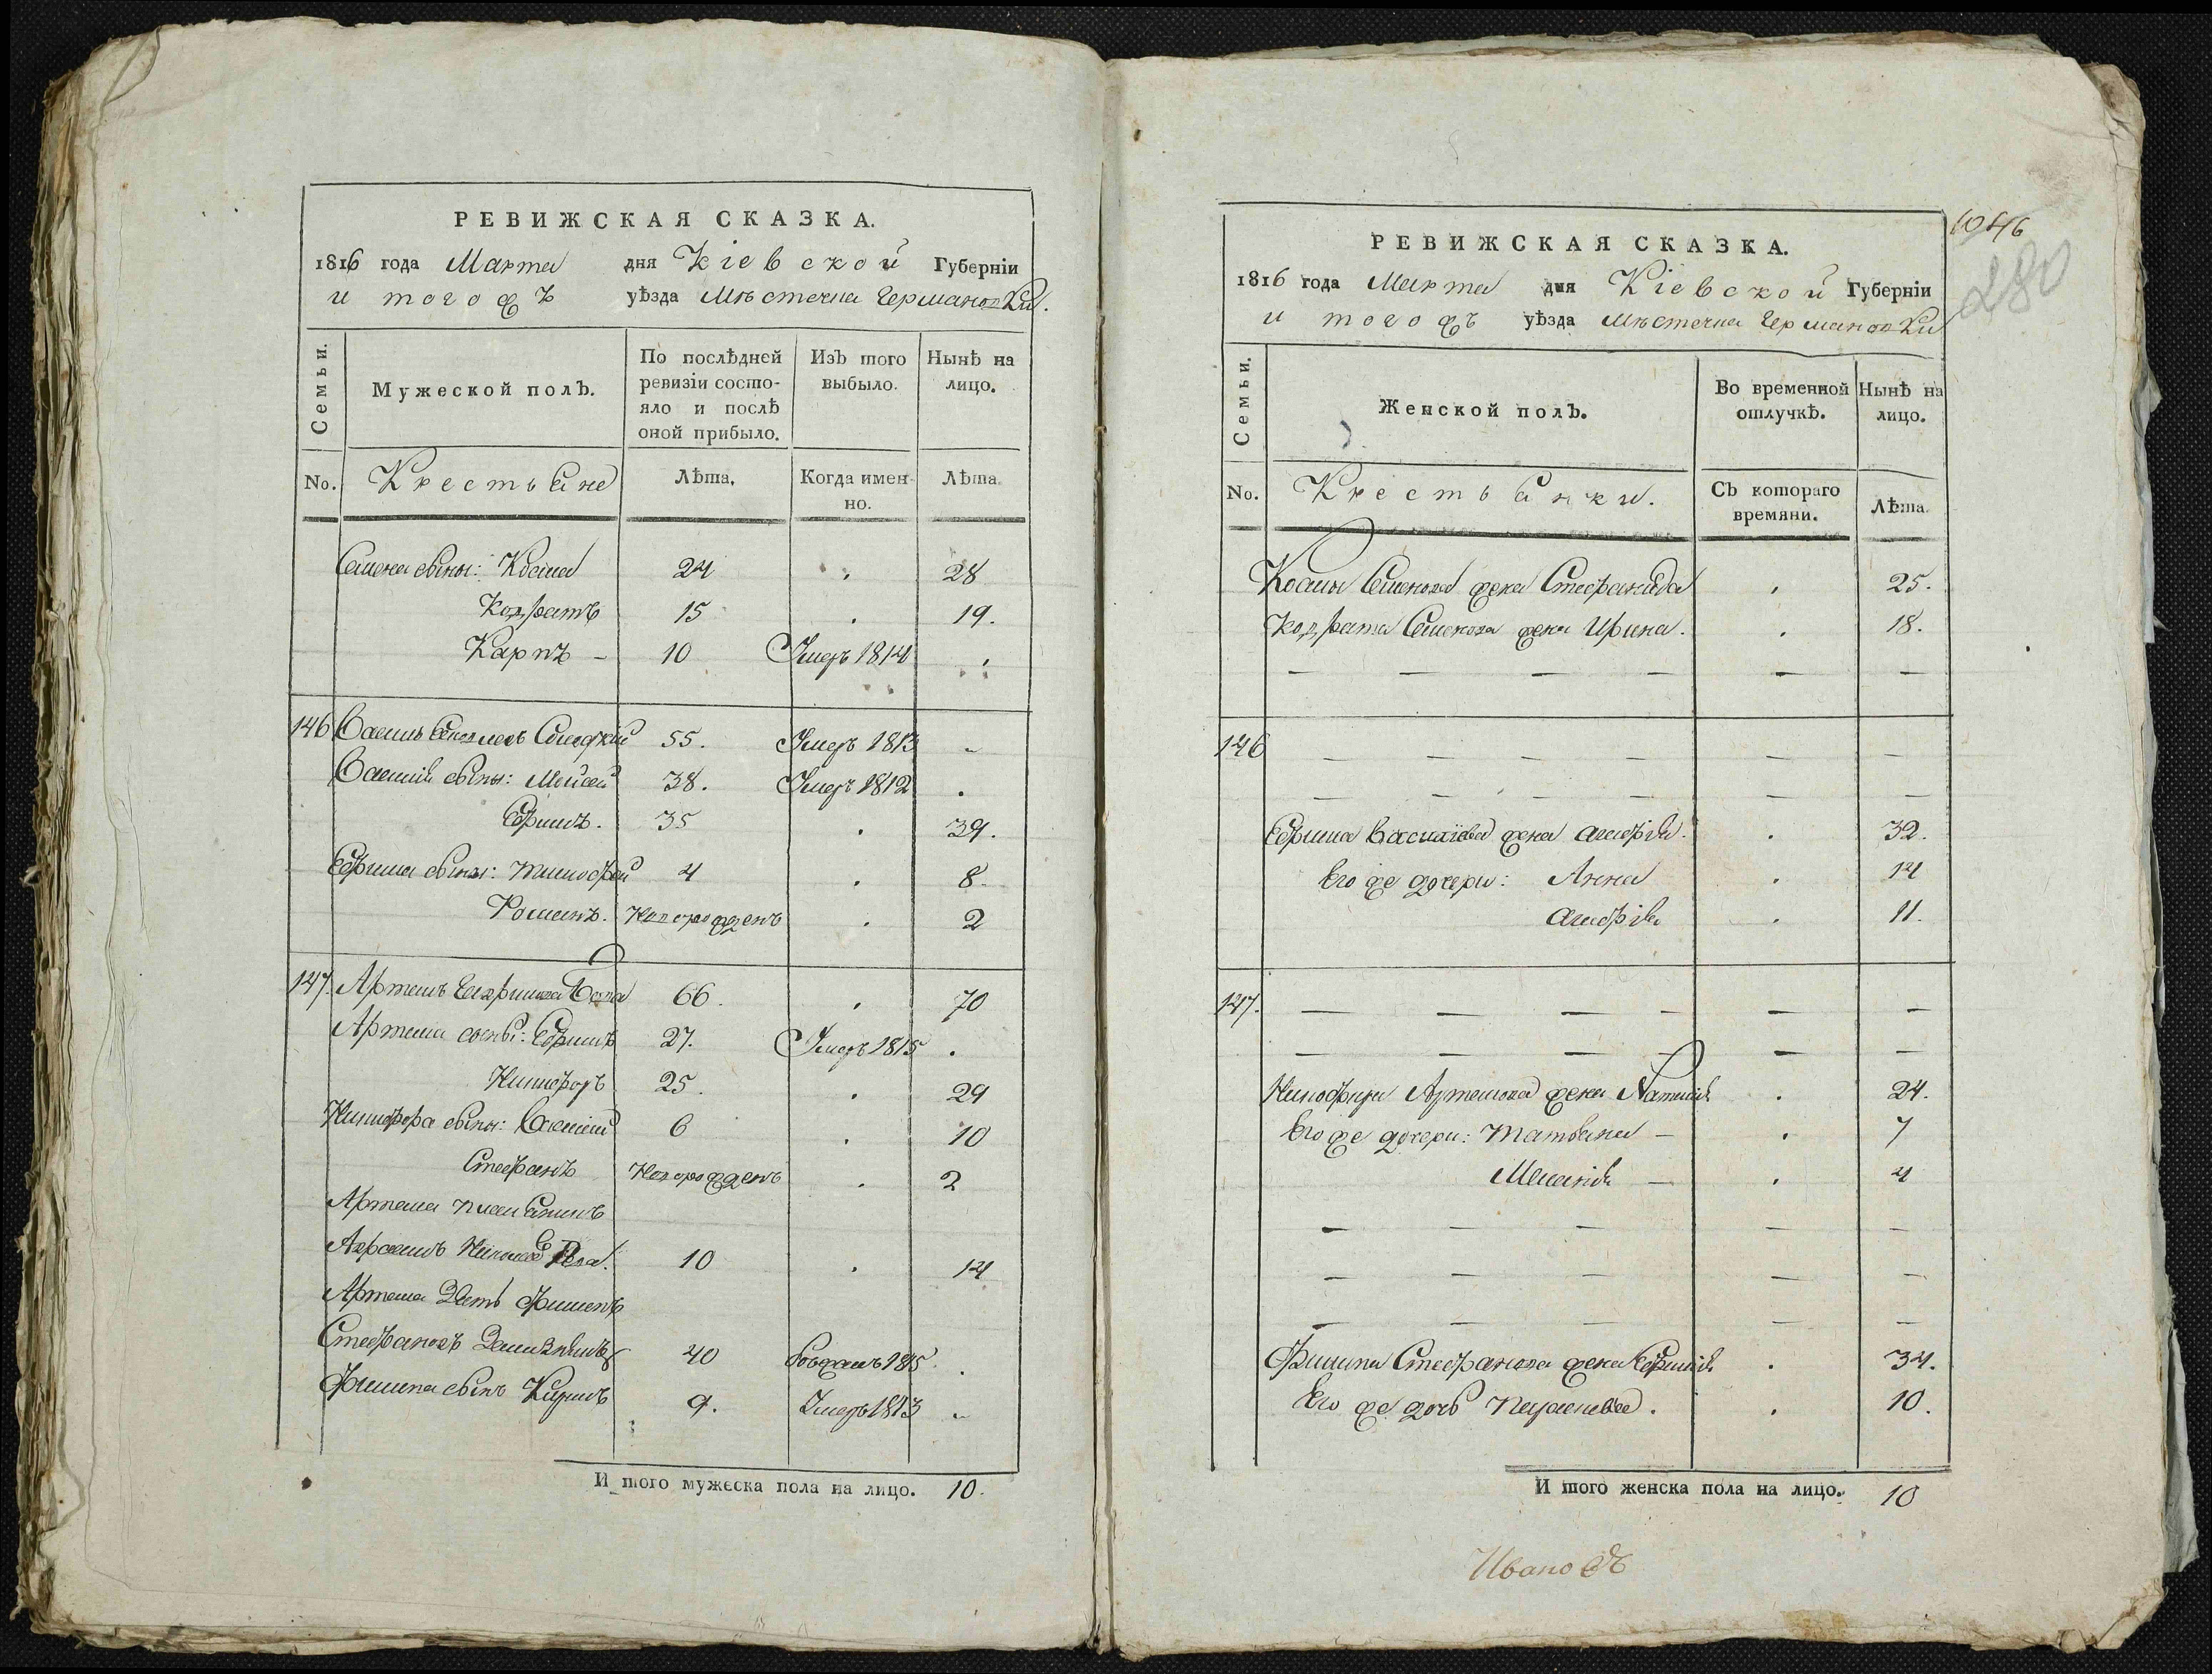 РЕВИЖСКАЯ СКАЗКА.
1816 года Марта дня Кіевской Губерніи
и тогожъ уѣзда Мѣстечка Германовки.
Семьи.
Мужеской полъ.
По послѣдней ревизіи состояло и послѣ оной прибыло.
Изъ того выбыло.
Нынѣ на лицо.
No.
Крестьяне
Лѣта.
Когда именно.
Лѣта.
Семена сыны: Косма 24 28
Кодратъ 15 19.
Карпъ - 10 Умеръ 1814
146 55. Умеръ 1813
Василія сыны: Мойсей 38. Умеръ 1812
Ефимъ. 35 39.
Ефима сыны: Тимофей 4 8.
Романъ. Новорожденъ 2
147. Артемъ 66. 70
Артема сыны: Ефимъ 27. Умеръ 1815
Никифоръ 25. 29
Никифора сыны: Василій 6 10
Стефанъ Новорожденъ 2
Артема племянникъ
10 14
Артема Зять Филипъ
Стефановъ 40 1815
Филипа сынъ 9. Умеръ 1813
И того мужеска пола на лицо. 10.
1046
280
РЕВИЖСКАЯ СКАЗКА.
1816 года Марта дня Кіевской Губерніи
и тогожъ уѣзда Мѣстечка Германовки
Семьи.
Женской полъ.
Во временной отлучкѣ.
Нынѣ на лицо.
No.
Крестьянки.
Съ котораго времяни.
Лѣта.
Космы Семенова жена Стефанида 25.
Кодрата Семенова жена Ирина. 18.
146
Ефима Василіева жена 32.
Его же дочери: Анна 14
11.
147.
Никифора Артемова жена Наталія 24.
Его же дочери: Татьяна - 7
Меланія - 4
Филипа Стефанова жена Ефимія 34.
Его же дочь 10.
И того женска пола на лицо. 10
Ивановъ